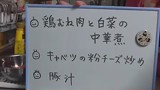 ① 鶏むね肉と白菜の
中華煮
② キャベツの粉チーズ炒め
③ 豚汁